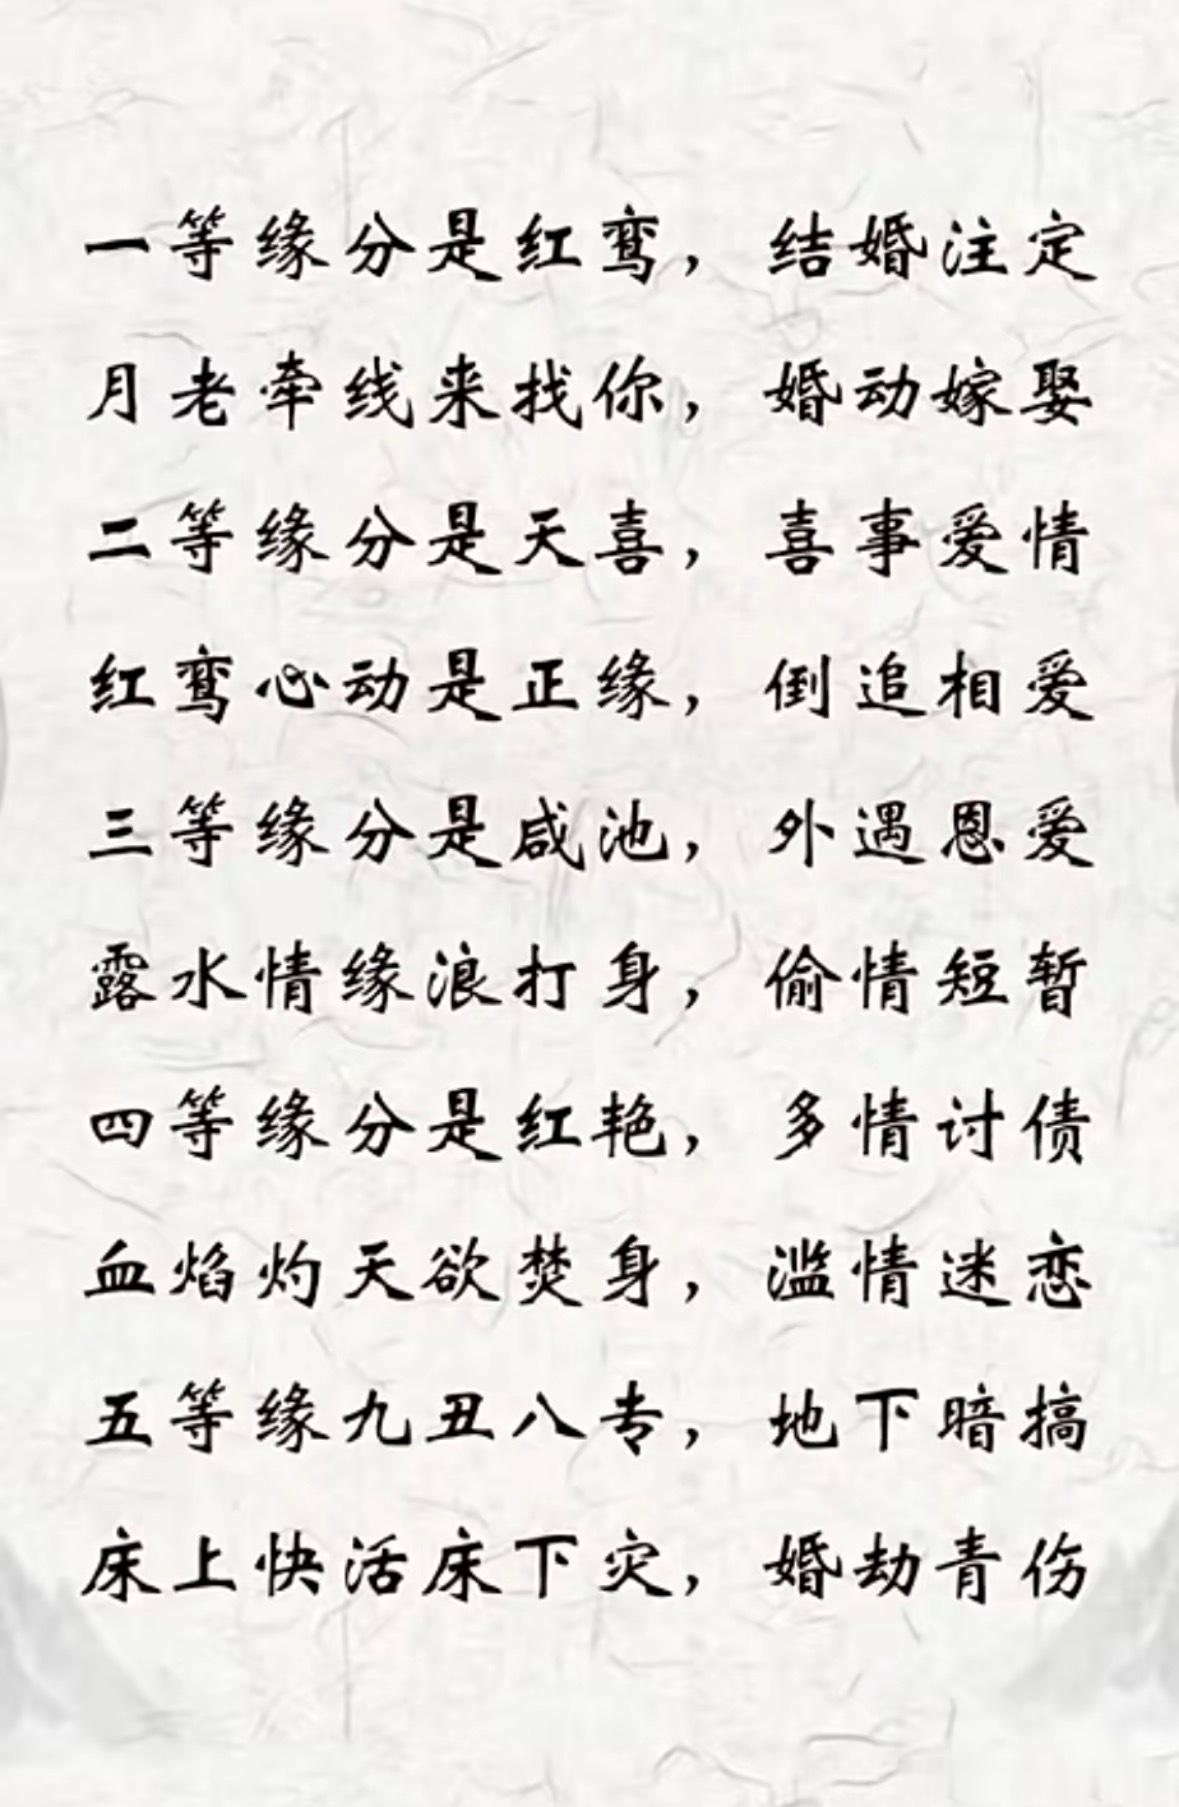 一等缘分是红鸾，结婚注定
月老牵线来找你，婚动嫁娶
二等缘分是天喜，喜事爱情
红鸾心动是正缘，倒追相爱
三等缘分是咸池，外遇恩爱
露水情缘浪打身，偷情短暂
四等缘分是红艳，多情讨债
血焰灼天欲焚身，滥情迷恋
五等缘九丑八专，地下暗搞
床上快活床下灾，婚劫青伤